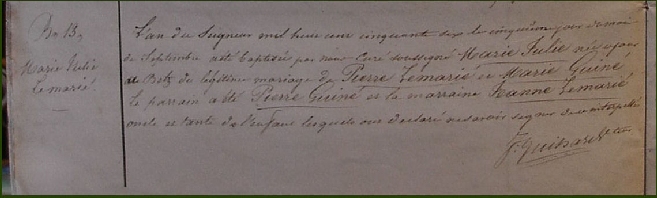 B. 13.
Marie Julie
Lemarié.
L'an du Seigneur mil huit cent cinquante six le cinquième jour du mois
de Septembre a été baptisée par nous Curé soussigné Marie Julie née ce jour
de Retz du légitime mariage de Pierre Lemarié et Marie Guiné
le parrain a été Pierre Guiné et la marraine Jeanne Lemarié
oncle et tante de l'enfant lesquels ont déclaré ne savoir signer de ce interpellés